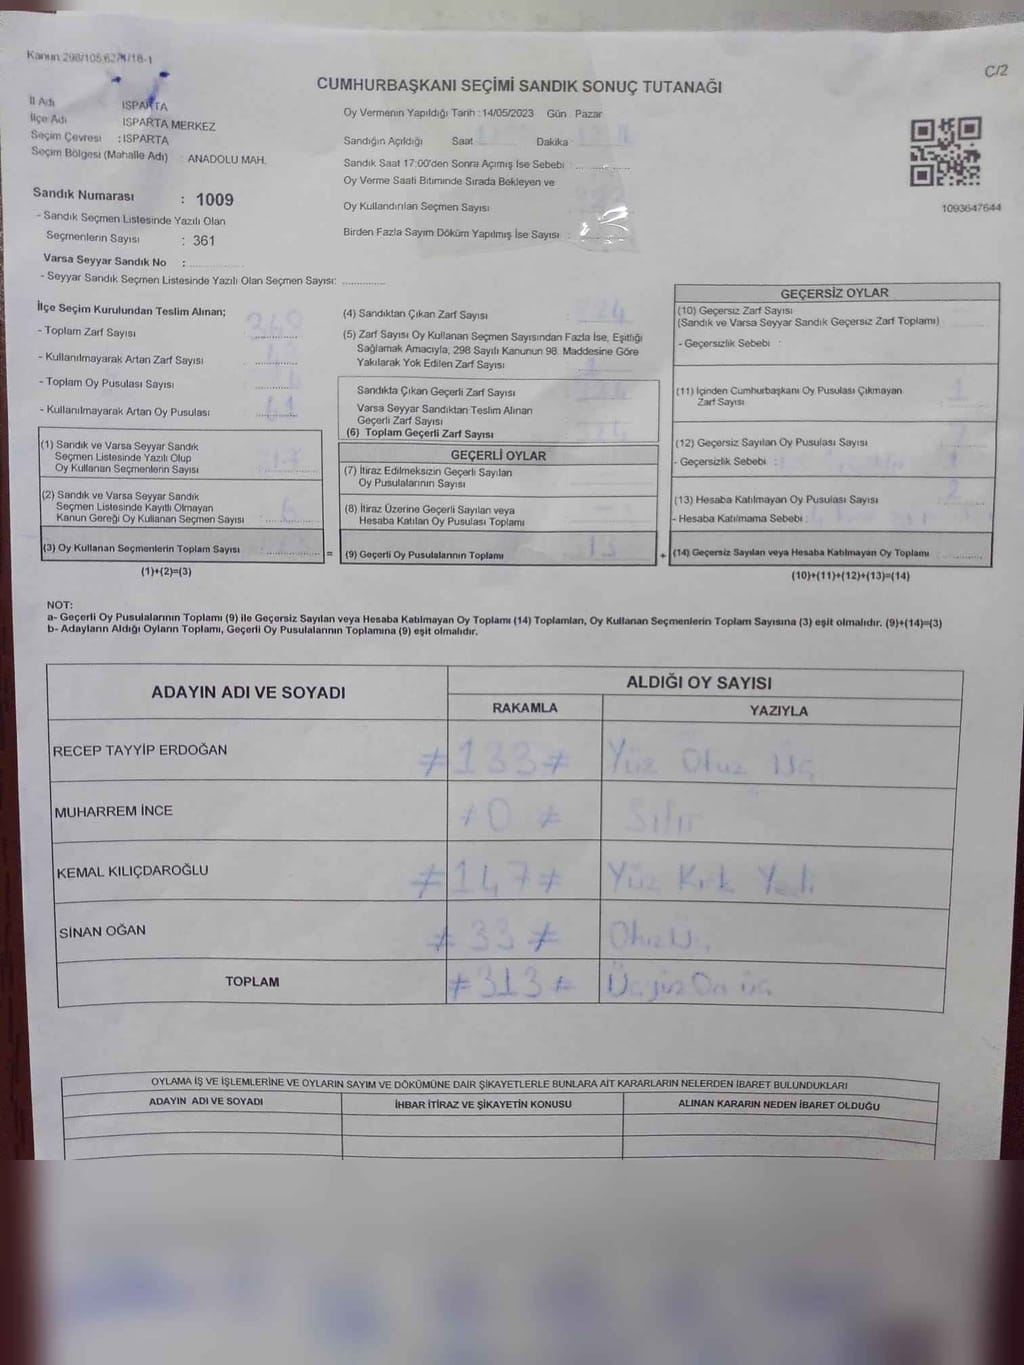 Kanun 298/105,627/1/18-1
C/2
CUMHURBAŞKANI SEÇİMİ SANDIK SONUÇ TUTANAĞI
İl Adı ISPARTA
İlçe Adı ISPARTA MERKEZ
Seçim Çevresi : ISPARTA
Seçim Bölgesi (Mahalle Adı) : ANADOLU MAH.
Oy Vermenin Yapıldığı Tarih : 14/05/2023 Gün : Pazar
Sandığın Açıldığı Saat Dakika
Sandık Saat 17:00'den Sonra Açımış İse Sebebi :
Oy Verme Saati Bitiminde Sırada Bekleyen ve
Oy Kullandırılan Seçmen Sayısı
Birden Fazla Sayım Döküm Yapılmış İse Sayısı :
1093647644
Sandık Numarası : 1009
- Sandık Seçmen Listesinde Yazılı Olan
Seçmenlerin Sayısı : 361
Varsa Seyyar Sandık No :
- Seyyar Sandık Seçmen Listesinde Yazılı Olan Seçmen Sayısı:
İlçe Seçim Kurulundan Teslim Alınan;
- Toplam Zarf Sayısı
- Kullanılmayarak Artan Zarf Sayısı
- Toplam Oy Pusulası Sayısı
- Kullanılmayarak Artan Oy Pusulası
(1) Sandık ve Varsa Seyyar Sandık
Seçmen Listesinde Yazılı Olup
Oy Kullanan Seçmenlerin Sayısı
(2) Sandık ve Varsa Seyyar Sandık
Seçmen Listesinde Kayıtlı Olmayan
Kanun Gereği Oy Kullanan Seçmen Sayısı 6
(3) Oy Kullanan Seçmenlerin Toplam Sayısı =
(1)+(2)=(3)
(4) Sandıktan Çıkan Zarf Sayısı : 324
(5) Zarf Sayısı Oy Kullanan Seçmen Sayısından Fazla İse, Eşitliği
Sağlamak Amacıyla, 298 Sayılı Kanunun 98. Maddesine Göre
Yakılarak Yok Edilen Zarf Sayısı
Sandıkta Çıkan Geçerli Zarf Sayısı
Varsa Seyyar Sandıktan Teslim Alınan
Geçerli Zarf Sayısı
(6) Toplam Geçerli Zarf Sayısı
GEÇERLİ OYLAR
(7) İtiraz Edilmeksizin Geçerli Sayılan
Oy Pusulalarının Sayısı
(8) İtiraz Üzerine Geçerli Sayılan veya
Hesaba Katılan Oy Pusulası Toplamı
(9) Geçerli Oy Pusulalarının Toplamı +
GEÇERSİZ OYLAR
(10) Geçersiz Zarf Sayısı
(Sandık ve Varsa Seyyar Sandık Geçersiz Zarf Toplamı)
- Geçersizlik Sebebi :
(11) İçinden Cumhurbaşkanı Oy Pusulası Çıkmayan 1
Zarf Sayısı
(12) Geçersiz Sayılan Oy Pusulası Sayısı
- Geçersizlik Sebebi :
(13) Hesaba Katılmayan Oy Pusulası Sayısı 2
- Hesaba Katılmama Sebebi :
(14) Geçersiz Sayılan veya Hesaba Katılmayan Oy Toplamı
(10)+(11)+(12)+(13)=(14)
NOT:
a- Geçerli Oy Pusulalarının Toplamı (9) ile Geçersiz Sayılan veya Hesaba Katılmayan Oy Toplamı (14) Toplamları, Oy Kullanan Seçmenlerin Toplam Sayısına (3) eşit olmalıdır. (9)+(14)=(3)
b- Adayların Aldığı Oyların Toplamı, Geçerli Oy Pusulalarının Toplamına (9) eşit olmalıdır.
ADAYIN ADI VE SOYADI ALDIĞI OY SAYISI
RAKAMLA YAZIYLA
RECEP TAYYİP ERDOĞAN ≠133≠ Yüz Otuz Üç
MUHARREM İNCE ≠0≠ Sıfır
KEMAL KILIÇDAROĞLU ≠147≠ Yüz Kırk Yedi
SİNAN OĞAN ≠33≠ Otuz Üç
TOPLAM ≠313≠ Üçyüz On üç
OYLAMA İŞ VE İŞLEMLERİNE VE OYLARIN SAYIM VE DÖKÜMÜNE DAİR ŞİKAYETLERLE BUNLARA AİT KARARLARIN NELERDEN İBARET BULUNDUKLARI
ADAYIN ADI VE SOYADI İHBAR İTİRAZ VE ŞİKAYETİN KONUSU ALINAN KARARIN NEDEN İBARET OLDUĞU